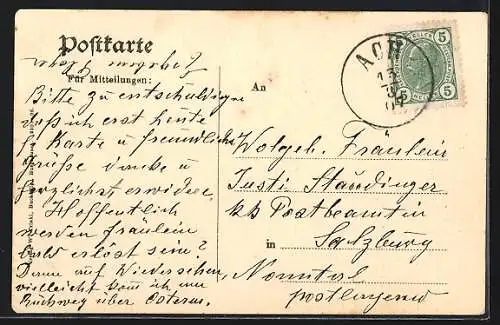 Postkarte
Für Mitteilungen:
Bitte zu entschuldigen
daß ich erst heute
f. Karte u freundliche
Grüße danke u
herzlichst erwidere.
Hoffentlich
werden Fräulein
bald erlöst sein?
Denn auf Wiedersehen,
vielleicht kom̅ ich am
Rückweg über Ostern.
An
Wolgeb. Fräulein
Justi Staudinger
kk Postbeamtin
in Salzburg
Nonntal
postlagernd
ACH
5
5 5